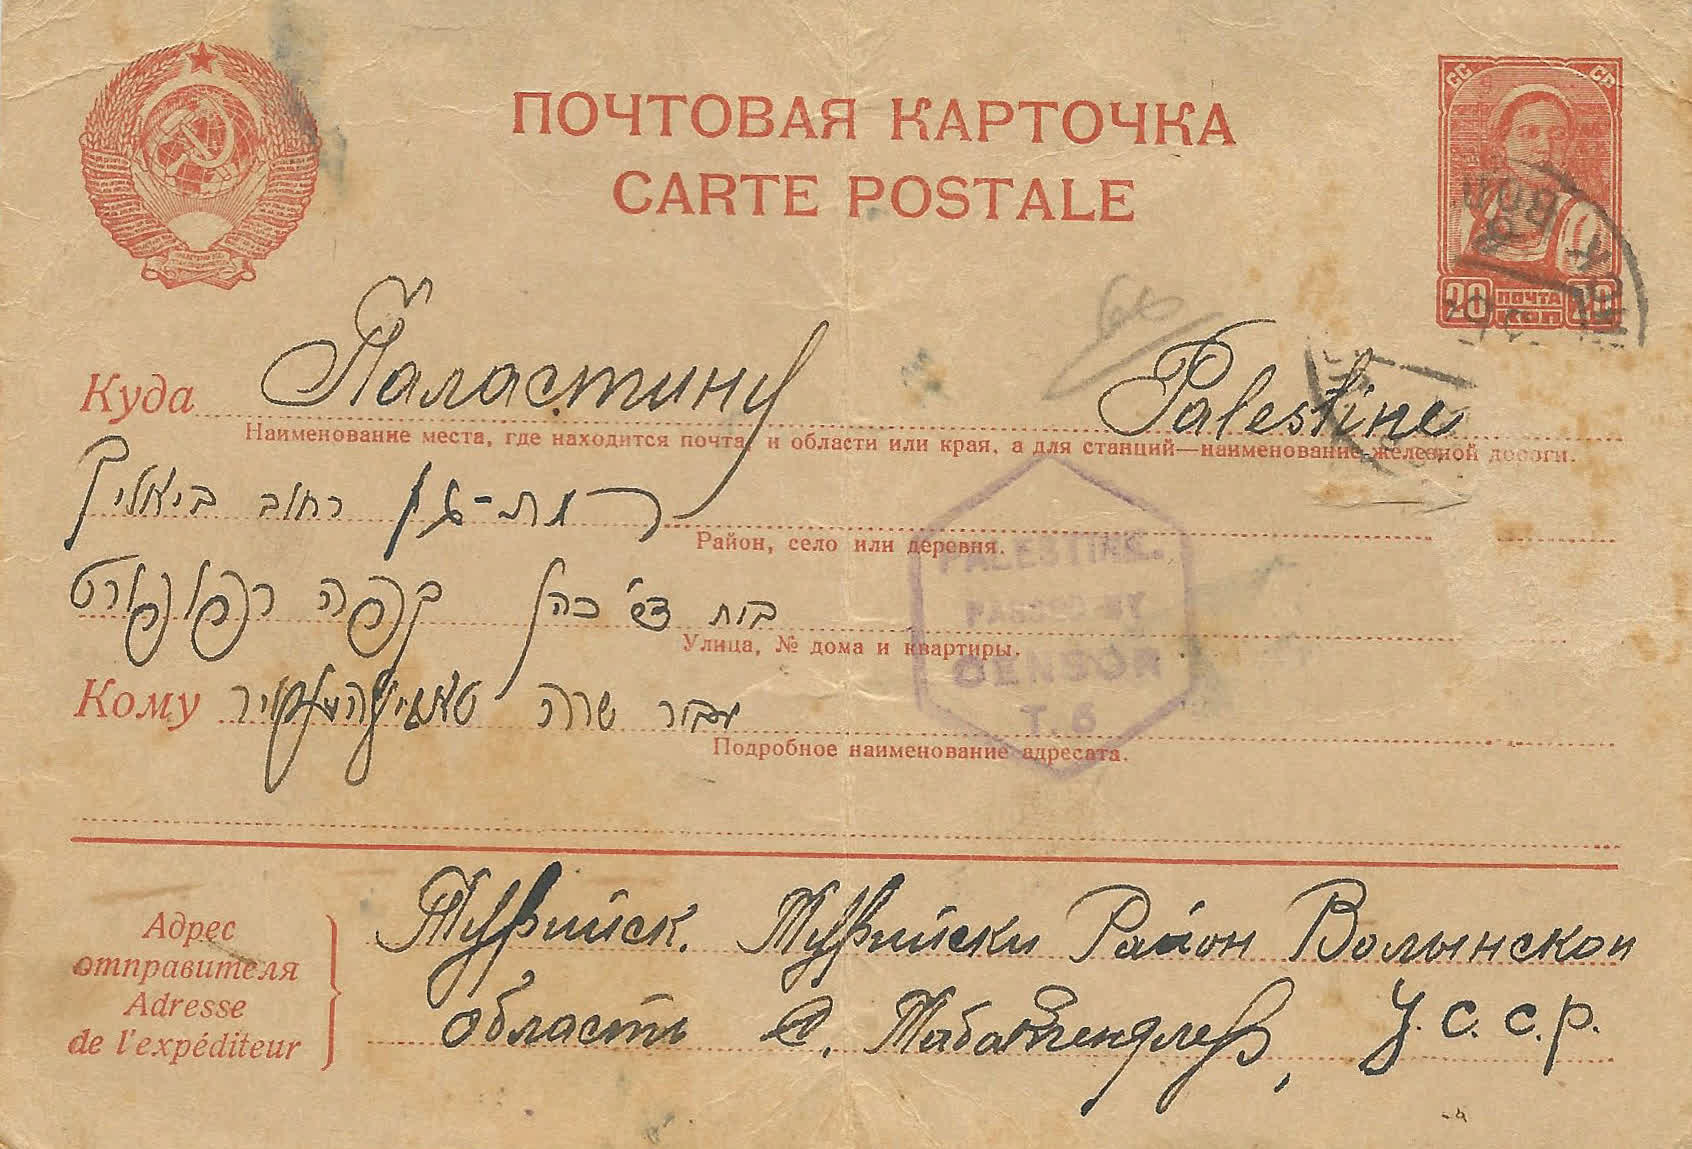 ПОЧТОВАЯ КАРТОЧКА
CARTE POSTALE
СС СР
20 ПОЧТА 20
КОП
60
Куда Паластину Palestine
Наименование места, где находится почта, и области или края, а для станций—наименование железной дороги.
רמת-גן רחוב ביאליק
Район, село или деревня.
בית כהן קפה רפופורט
Улица, № дома и квартиры.
Кому עבור שרה
Подробное наименование адресата.
PALESTINE.
PASSED BY
CENSOR
T. 6
Адрес
отправителя
Adresse
de l'expéditeur
Турийск. Турийски Район Волынскои
область У.С.С.Р.